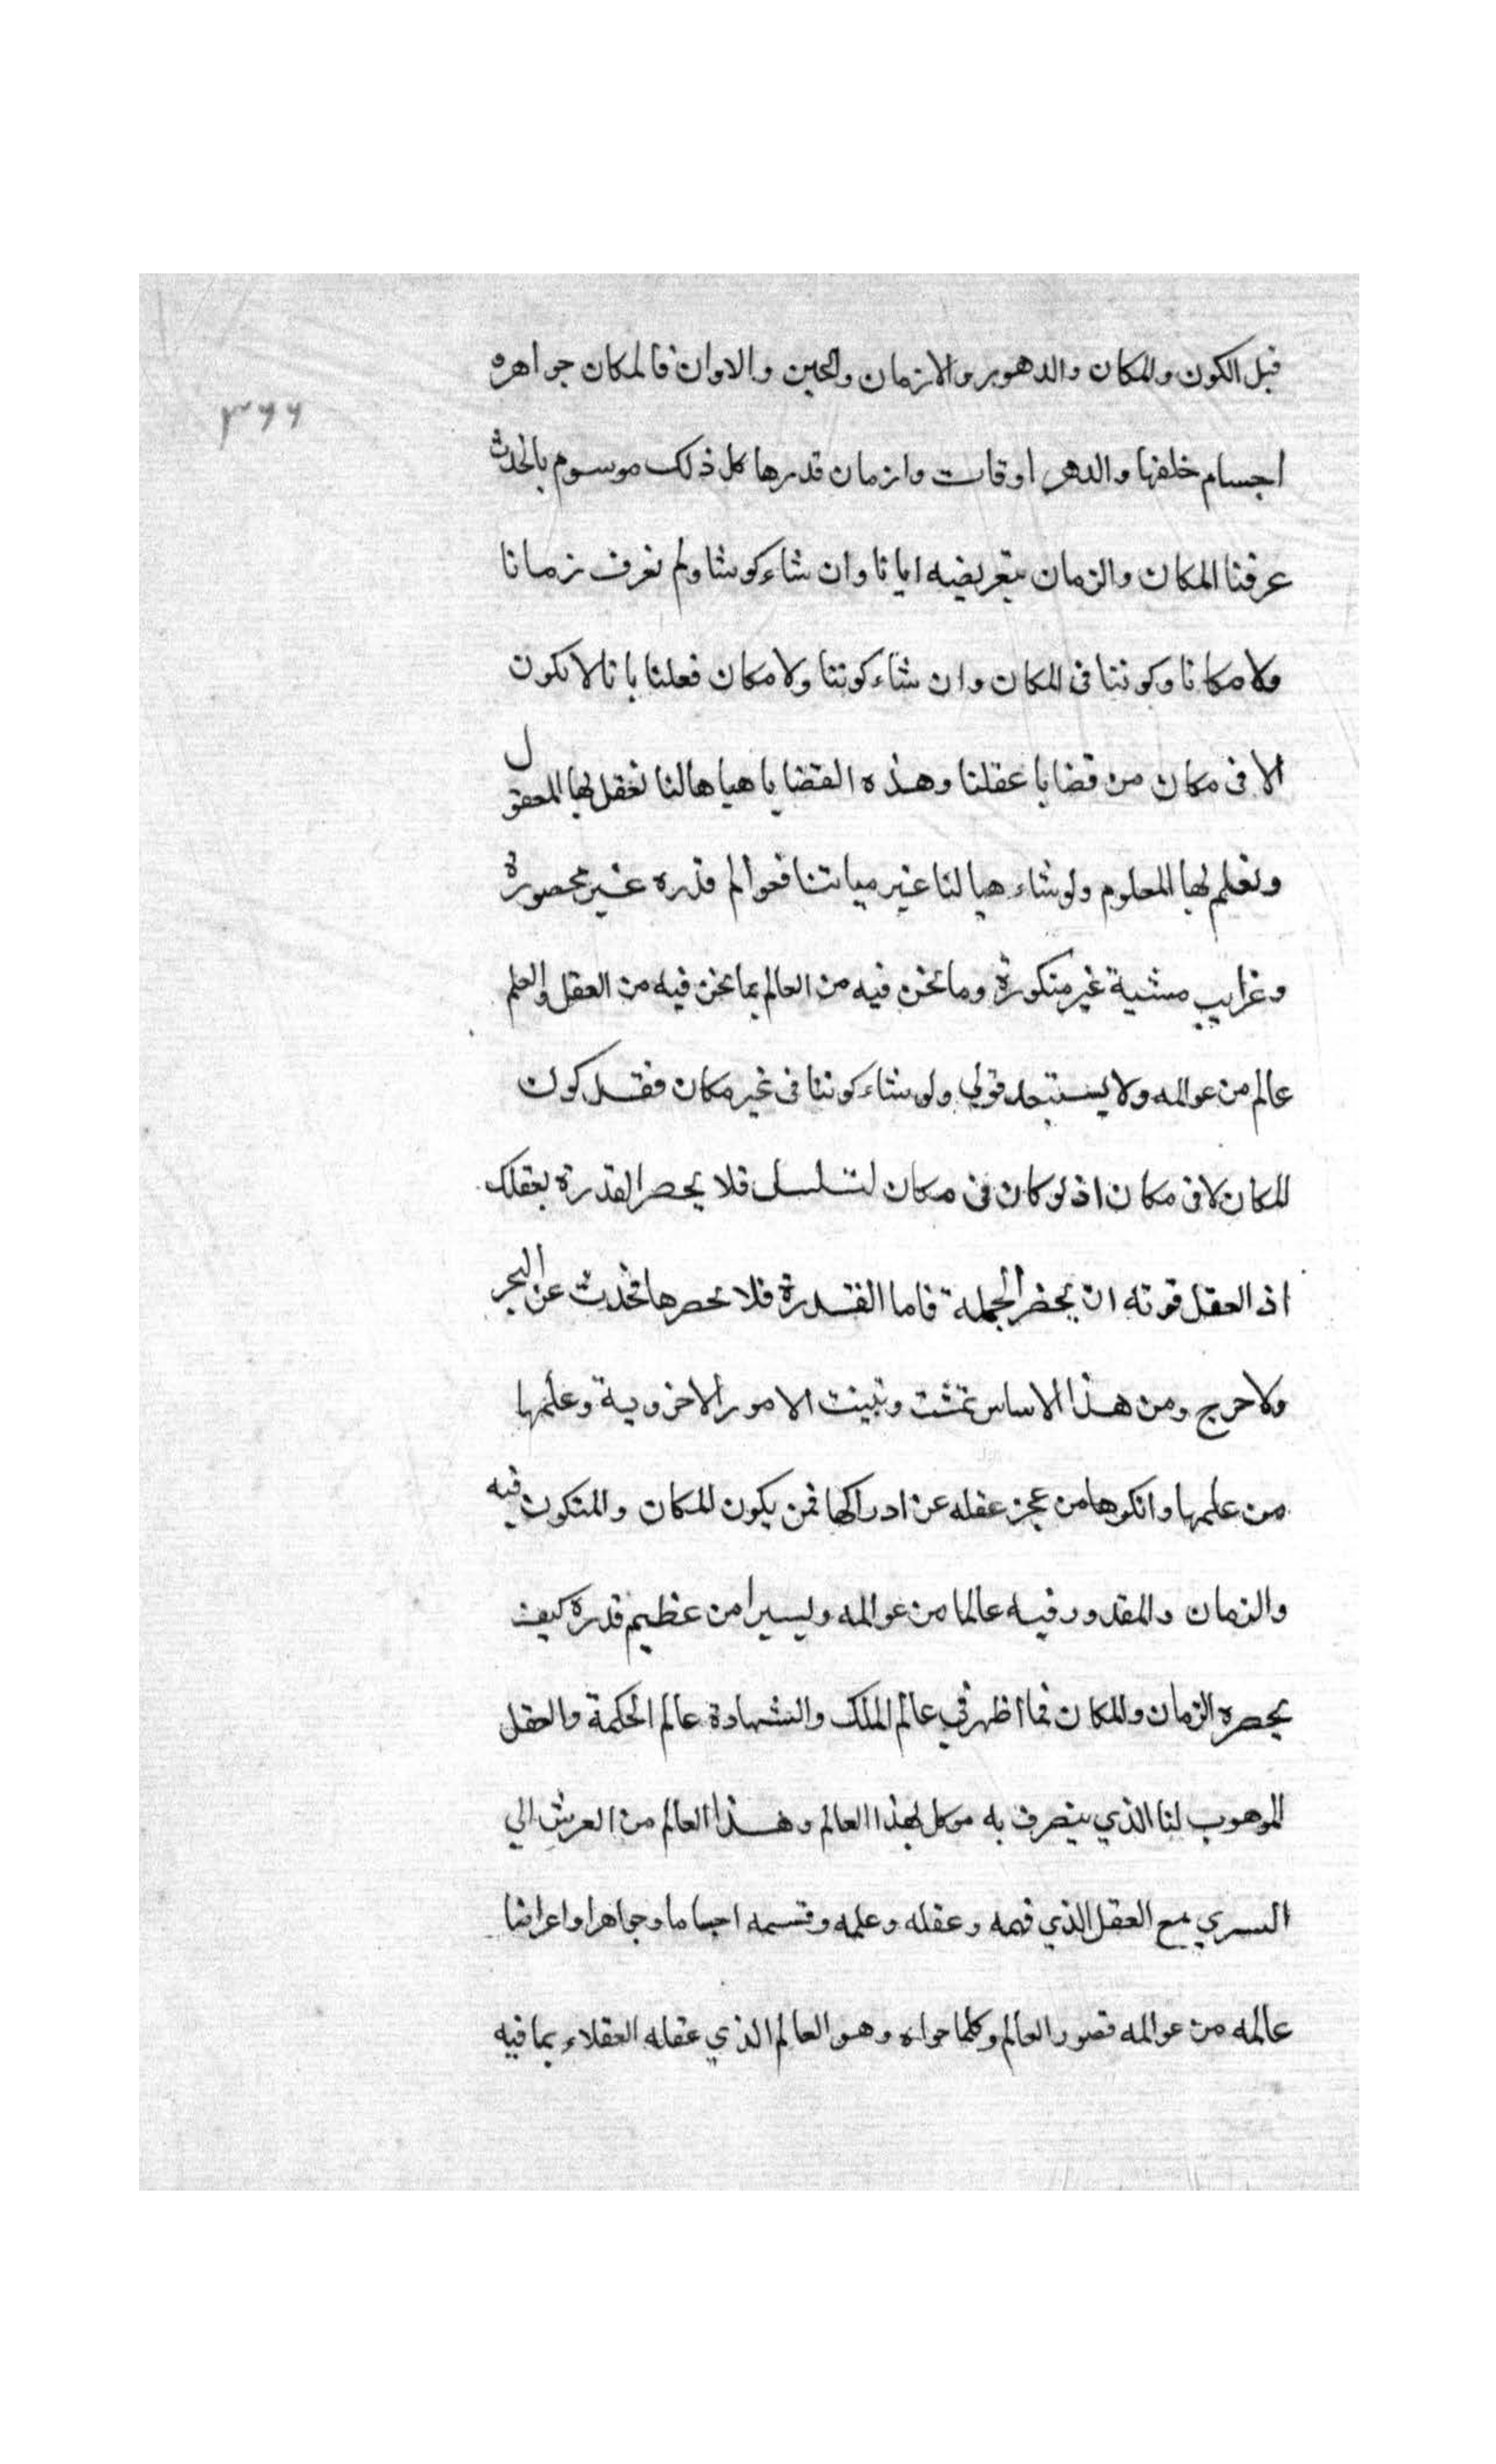 قبل الكون والمكان والدهور والازمان والحين والاوان فالمكان جواهره
٣٦٦
اجسام خلقها والدهر اوقات وازمان قدرها كل ذلك موسوم بالحدث
عرفنا المكان والزمان بتعريفه ايانا وان شاء كوننا ولم نعرف زمانا
ولا مكانا وكوننا فى المكان وان شاء كوننا ولا مكان فعلنا بانا لا نكون
الا فى مكان من قضايا عقلنا وهذه القضايا هياها لنا نعقل بها المعقول
ونعلم بها المعلوم ولو شاء هيا لنا غير هياتنا فعوالم قدره غير محصورة
وغرايب مشية غير منكورة وما نحن فيه من العالم بما نحن فيه من العقل والعلم
عالم من عوالمه ولا يستبعد قولي ولو شاء كوننا فى غير مكان فقد كون
المكان لا فى مكان اذ لو كان فى مكان لتسلسل فلا يحصر القدرة بعقلك
اذ العقل قوته ان يحضر الجملة فاما القدرة فلا تحصرها تحدث عن البحر
ولا حرج ومن هذا الاساس تمشت وتبينت الامور الاخروية وعلمها
من علمها وانكرها من عجز عقله عن ادراكها فمن يكون المكان والمتكون فيه
والزمان والمقدور فيه عالما من عوالمه ويسيرا من عظيم قدرة كيف
يحصره الزمان والمكان فما اظهر في عالم الملك والشهادة عالم الحكمة والعقل
الموهوب لنا الذي يتصرف به موكل بهذا العالم وهذا العالم من العرش الي
السري مع العقل الذي فهمه وعقله وعلمه وقسمه اجساما وجواهرا واعراضا
عالمه من عوالمه فصور العالم وكلما حواه وهو العالم الذي عقله العقلاء بما فيه